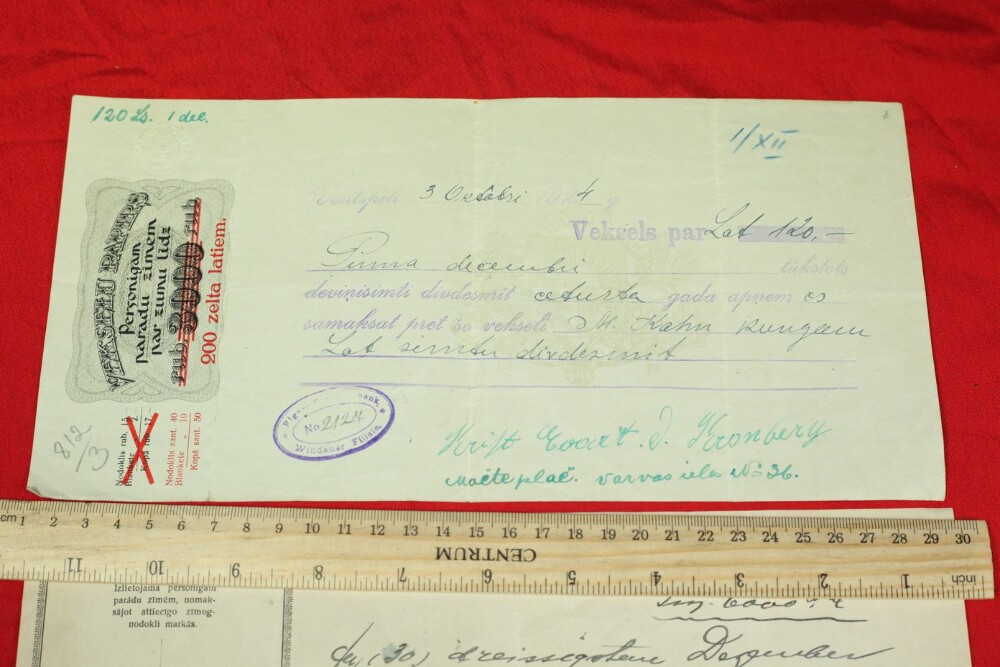 120 Ls. 1 dec.
1/XII
Ventspilī 3 Oktobri 1924 g.
Veksels par Lat 120.–
Pirma decembri tūkstots
deviņisimti divdesmit ceturta gada apņem os
samaksat pret šo vekseli M. Kahn kungam
Lat simtu divdezmit
VEKSEĻU PAPIRS
Personigam
paradu zimem
par sumu lidz
rub 3000 rub
200 zelta latiem.
Nodoklis rub. 15
Blankete 2
Kopā rub. 17
Nodoklis sant. 40
Blankete 10
Kopā sant. 50
812/3
No 2124
Windauer Filiale.
Kronberg
No 36.
cm 1 2 3 4 5 6 7 8 9 10 11 12 13 14 15 16 17 18 19 20 21 22 23 24 25 26 27 28 29 30
CENTRUM
11 10 9 8 7 6 5 4 3 2 1 inch
Izlietojama personigām
parādu zīmēm, nomak-
sājot attiecīgo zīmog-
nodokli markās.
(30) dreissigsten Dezember